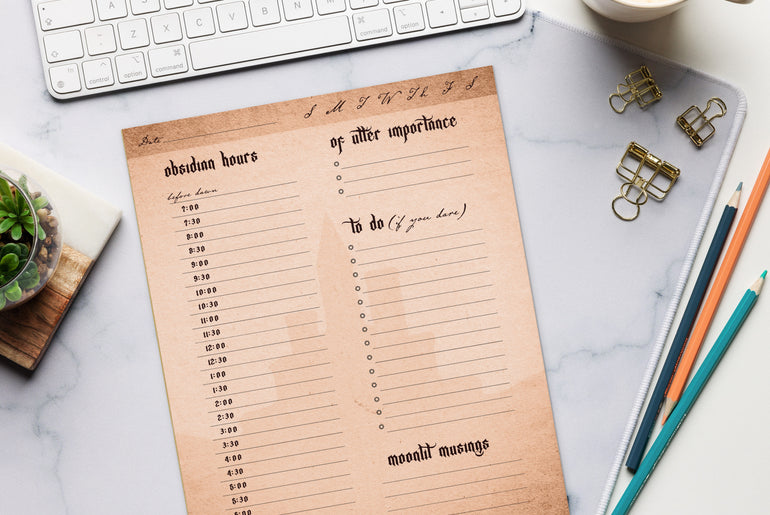 Z X C V B N M
control option command command option
Date
S M T W Th F S
obsidian hours
before dawn
7:00
7:30
8:00
8:30
9:00
9:30
10:00
10:30
11:00
11:30
12:00
12:30
1:00
1:30
2:00
2:30
3:00
3:30
4:00
4:30
5:00
5:30
6:00
of utter importance
to do (if you dare)
moonlit musings